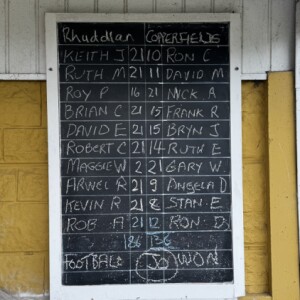 Rhuddlan COPPERFIELDS
KEITH J 21 10 RON C
RUTH M 21 11 DAVID M
ROY P 16 21 NICK A
BRIAN C 21 15 FRANK R
DAVID E 21 15 BRYN J
ROBERT C 21 14 RUTH E
MAGGIE W 2 21 GARY W
ARWEL R 21 9 ANGELA D
KEVIN R 21 8 STAN E
ROB A 21 12 RON D
186 136
FOOTBALL 50 WON